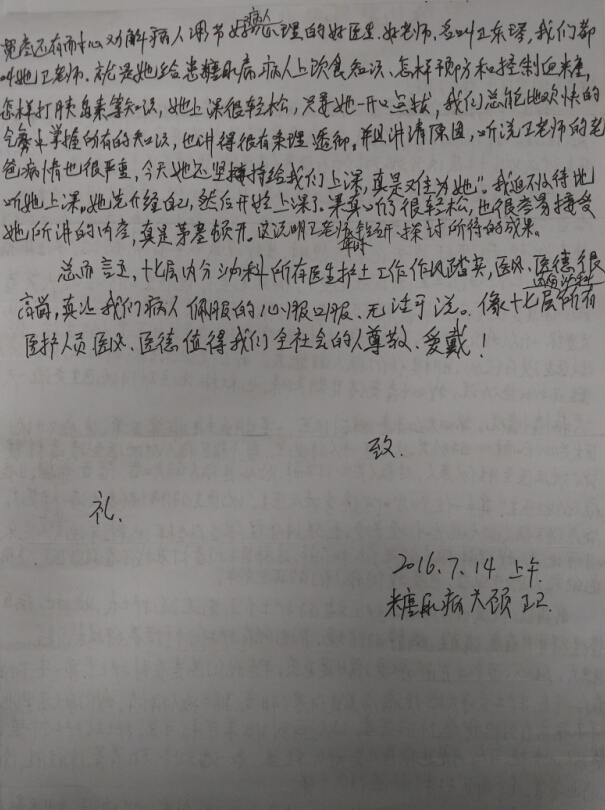 还有耐心劝解病人调节好病人心理的好医生、好老师,名叫卫东琴,我们都
叫她卫老师。就是她给患糖尿病病人上饮食知识、怎样预防和控制血糖,
怎样打胰岛素等知识,她上课很轻松,只要她一开口点拔,我们总能比欢快的
掌握所有的知识,也讲得很有条理透彻。并且讲清原因,听说卫老师的老
爸病情也很严重,今天她还坚持给我们上课,真是难为她"。我迫不及待地
听她上课。她先介绍自己,然后开始上课了。果真听的很轻松,也很容易接受
她所讲的内容,真是茅塞顿开。这说明卫老师钻研、探讨所得的成果。
总而言之,十七层内分泌科所有医生护士工作作风踏实,医风、医德很
高尚,真让我们病人佩服的心服口服、无法可说。像十七层内分泌科所有
医护人员医风、医德值得我们全社会的人尊敬、爱戴!
致.
礼.
2016.7.14 上午.
糖尿病六颈